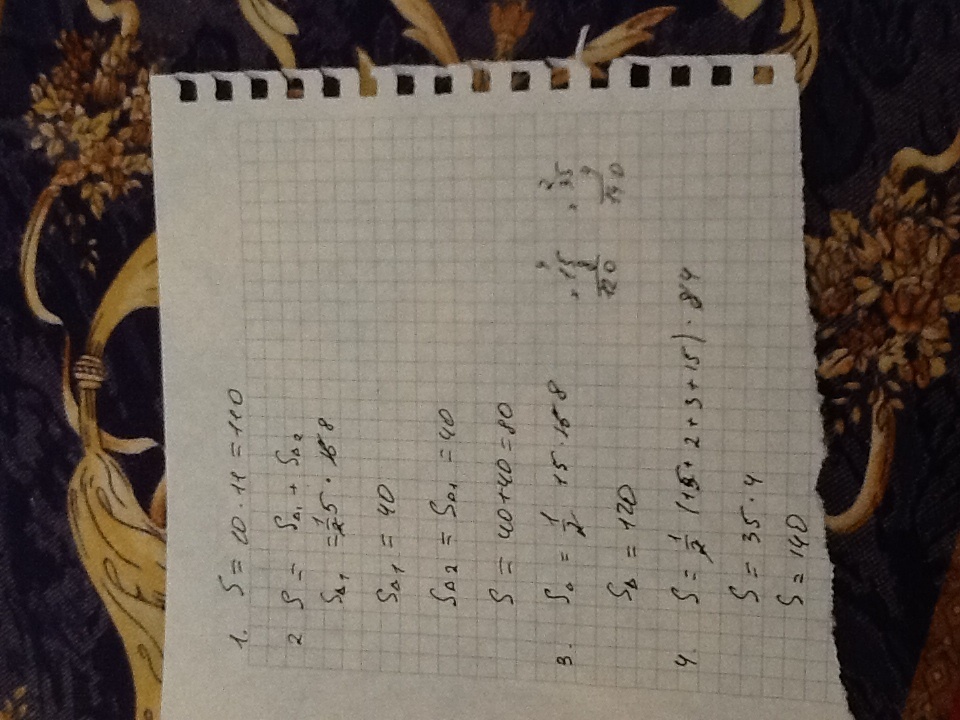 1. S = 10 · 11 = 110
2 S = S△1 + S△2
S△1 = 1/2 5 · 16 8
S△1 = 40
S△2 = S△1 = 40
S = 40+40 = 80
3. S△ = 1/2 15 · 16 8
S△ = 120
× 15
8
120
× 35
4
140
4. S = 1/2 (15 + 2 + 3 + 15) · 8 4
S = 35 · 4
S = 140